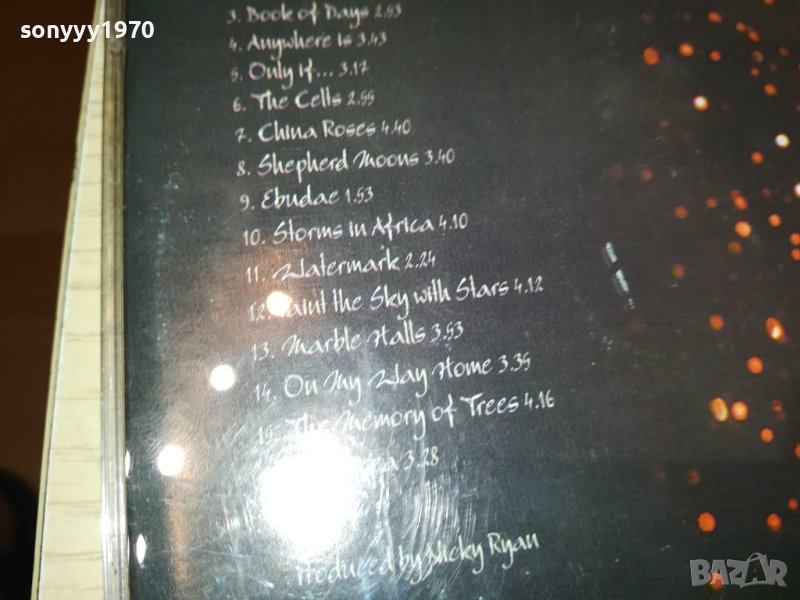 sonyyy1970
3. Book of Days 2.53
4. Anywhere Is 3.43
5. Only If... 3.17
6. The Celts 2.55
7. China Roses 4.40
8. Shepherd Moons 3.40
9. Ebudae 1.53
10. Storms in Africa 4.10
11. Watermark 2.24
12. Paint the Sky with Stars 4.12
13. Marble Halls 3.53
14. On My Way Home 3.35
15. The Memory of Trees 4.16
3.28
Produced by Nicky Ryan
BAZAR